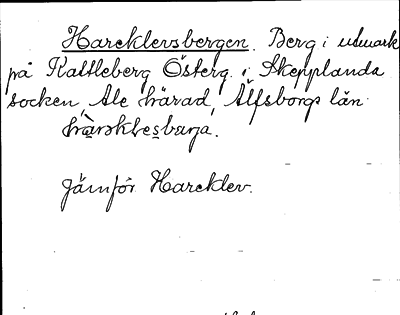 Harcklevsbergen. Berg i utmark
på Kattleberg Österg. i Skepplanda
socken, Ale härad, Älfsborgs län.
Jämför Harcklev.